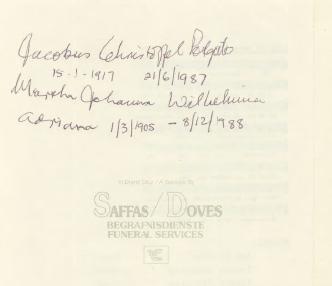 Jacobus Christoffel Potgieter
15-1-1917 21/6/1987
Martha Johanna Wilhelmina
Adriana 1/3/1905 - 8/12/1988
SAFFAS/DOVES
BEGRAFNISDIENSTE
FUNERAL SERVICES